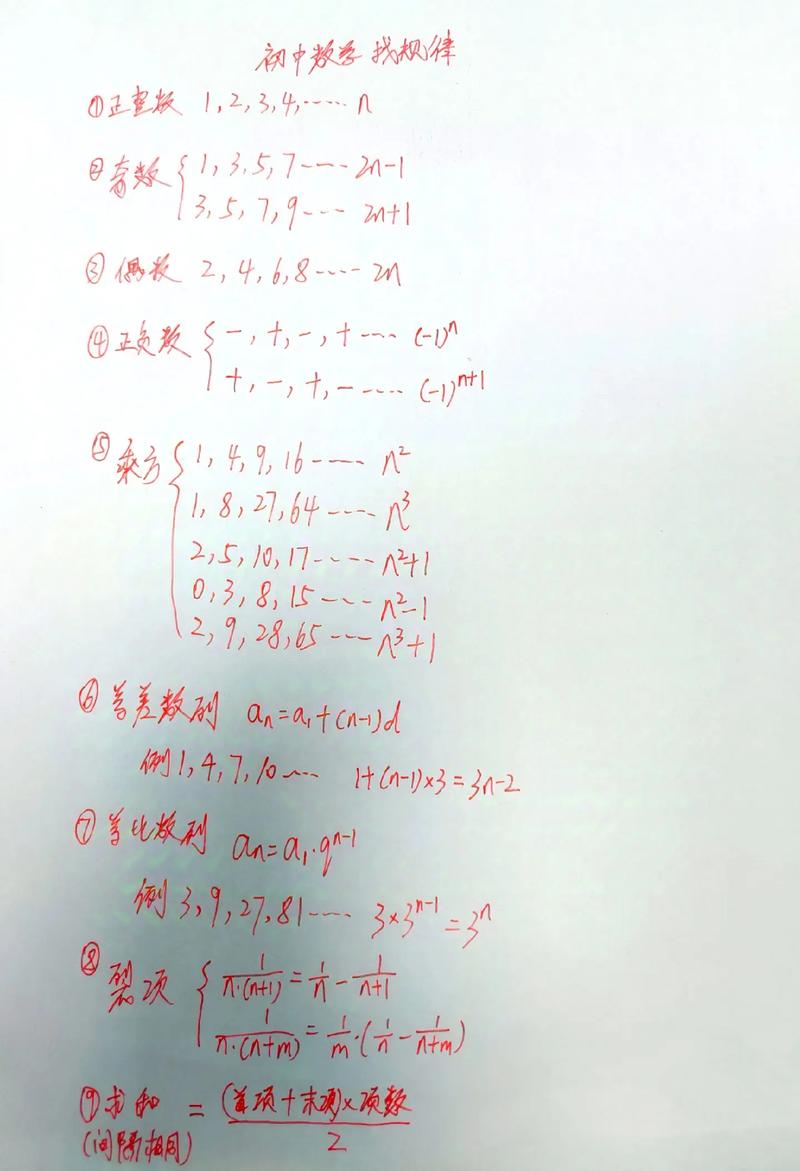 初中数学 找规律
①正整数 1,2,3,4,…… n
②奇数 { 1,3,5,7 …… 2n-1
3,5,7,9 …… 2n+1
③偶数 2,4,6,8 …… 2n
④正负数 { -,+,-,+ …… (-1)ⁿ
+,-,+,- …… (-1)ⁿ⁺¹
⑤乘方 { 1,4,9,16 …… n²
1,8,27,64 …… n³
2,5,10,17 …… n²+1
0,3,8,15 …… n²-1
2,9,28,65 …… n³+1
⑥等差数列 aₙ=a₁+(n-1)d
例1,4,7,10 …… 1+(n-1)×3=3n-2
⑦等比数列 aₙ=a₁·qⁿ⁻¹
例 3,9,27,81 …… 3×3ⁿ⁻¹=3ⁿ
⑧裂项 { 1/(n·(n+1)) = 1/n - 1/(n+1)
1/(n·(n+m)) = 1/m·(1/n - 1/(n+m))
⑨求和 = (首项+末项)×项数/2
(间隔相同)